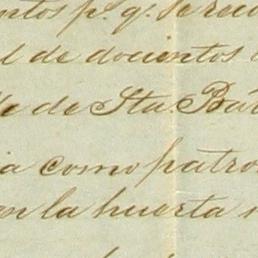 ntos p. q. se recu
l de docientos
de de Sta Bár
ia como patro
en la huerta